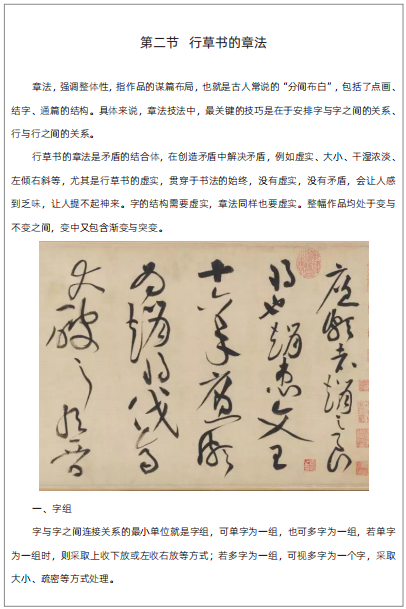 第二节 行草书的章法
章法，强调整体性，指作品的谋篇布局，也就是古人常说的“分间布白”，包括了点画、
结字、通篇的结构。具体来说，章法技法中，最关键的技巧是在于安排字与字之间的关系、
行与行之间的关系。
行草书的章法是矛盾的结合体，在创造矛盾中解决矛盾，例如虚实、大小、干湿浓淡、
左倾右斜等，尤其是行草书的虚实，贯穿于书法的始终，没有虚实，没有矛盾，会让人感
到乏味，让人提不起神来。字的结构需要虚实，章法同样也要虚实。整幅作品均处于变与
不变之间，变中又包含渐变与突变。
廉頗者趙之良
將也趙惠文王
十六年廉頗
為趙將伐齊
大破之取晉
一、字组
字与字之间连接关系的最小单位就是字组，可单字为一组，也可多字为一组，若单字
为一组时，则采取上收下放或左收右放等方式；若多字为一组，可视多字为一个字，采取
大小、疏密等方式处理。